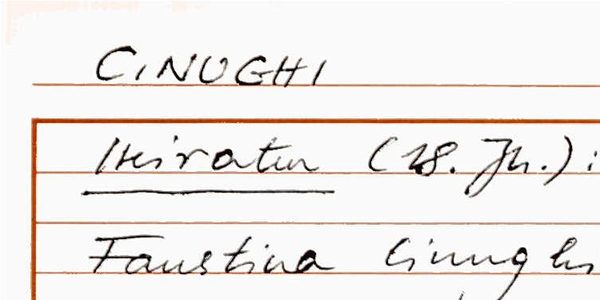 CINUGHI
Heiraten (18. Jh.):
Faustina Cinughi